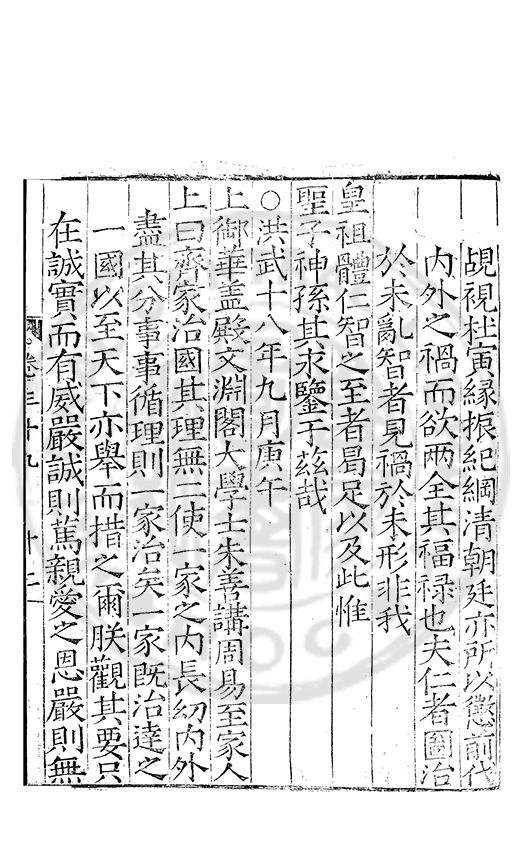 覘視杜寅緣振紀綱清朝廷亦所以懲前代
内外之禍而欲两全其福禄也夫仁者圖治
於未亂智者見禍於未形非我
皇祖體仁智之至者曷足以及此惟
聖子神孫其求鑒于茲哉
○洪武十八年九月庚午
上御華盖殿文淵閣大學士朱善講周易至家人
上曰齊家治國其理無二使一家之内長幼内外
盡其分事事循理則一家治矣一家既治達之
一國以至天下亦舉而措之爾朕觀其要只
在誠實而有威嚴誠則篤親愛之恩嚴則無
卷三十九 十二